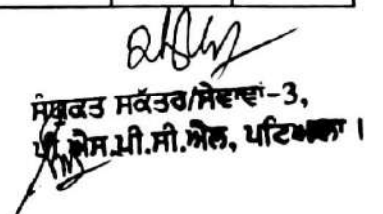 ਸੰਯੁਕਤ ਸਕੱਤਰ/ਸੇਵਾਵਾਂ-3,
ਪੀ.ਐਸ.ਪੀ.ਸੀ.ਐਲ, ਪਟਿਆਲਾ ।